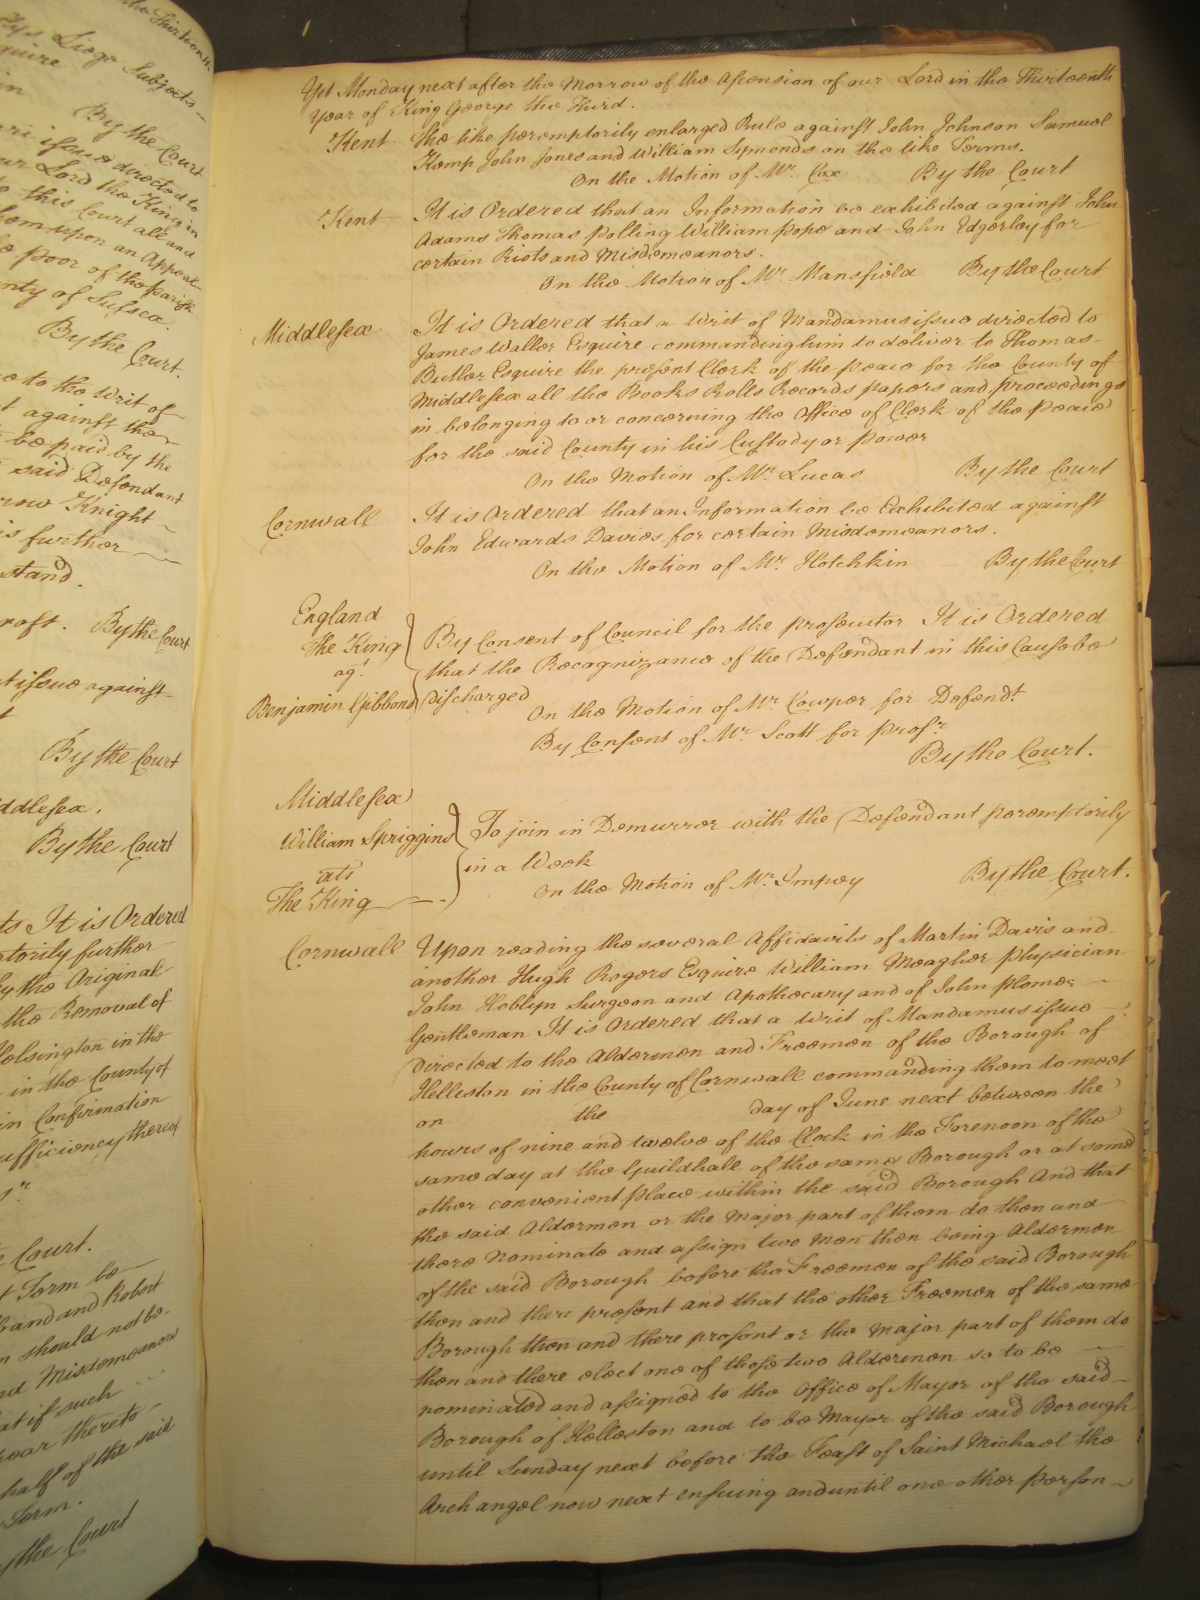 the Thirteenth
tys Liege Subjects
quire
in
By the Court
ari issue directed to
our Lord the King in
to this Court all and
them upon an Appeal
e poor of the parish
nty of Sussex.
By the Court.
e to the Writ of
t against the
be paid by the
said Defendant
row Knight
is further
stand.
roft. By the Court
t issue against
By the Court
ddlesex.
By the Court
ts It is Ordered
ptorily further
y the Original
the Removal of
olsington in the
in the County of
in Confirmation
ufficiency thereof
Court.
Term be
band and Robert
n should not be
nd Misdemeanors
at if such
ear thereto
half of the said
Term.
y the Court
Yet Monday next after the Morrow of the Ascension of our Lord in the Thirteenth
Year of King George the Third.
Kent The like peremptorily enlarged Rule against John Johnson Samuel
Kemp John Jones and William Symonds on the like Terms.
On the Motion of Mr. Cox By the Court
Kent It is Ordered that an Information be exhibited against John
Adams Thomas Polling William Pope and John Edgerley for
certain Riots and Misdemeanors.
On the Motion of Mr. Mansfield By the Court
Middlesex It is Ordered that a Writ of Mandamus issue directed to
James Waller Esquire commanding him to deliver to Thomas
Butler Esquire the present Clerk of the peace for the County of
Middlesex all the Books Rolls Records papers and proceedings
in belonging to or concerning the Office of Clerk of the Peace
for the said County in his Custody or power
On the Motion of Mr. Lucas By the Court
Cornwall It is Ordered that an Information be Exhibited against
John Edwards Davies for certain Misdemeanors.
On the Motion of Mr. Hotchkin By the Court
England
The King
agt.
Benjamin Gibbons
By Consent of Council for the prosecutor It is Ordered
that the Recognizance of the Defendant in this Cause be
discharged
On the Motion of Mr. Cowper for Defendt.
By Consent of Mr. Scott for Prosr.
By the Court.
Middlesex
William Spriggins
ats
The King
To join in Demurrer with the Defendant peremptorily
in a Week
On the Motion of Mr. Impey By the Court.
Cornwall Upon reading the several Affidavits of Martin Davis and
another Hugh Rogers Esquire William Meagher Physician
John Hoblyn Surgeon and Apothecary and of John Plomer
Gentleman It is Ordered that a Writ of Mandamus issue
Directed to the Aldermen and Freemen of the Borough of
Helleston in the County of Cornwall commanding them to meet
on the day of June next between the
hours of nine and twelve of the Clock in the Forenoon of the
same day at the Guildhall of the same Borough or at some
other convenient place within the said Borough And that
the said Aldermen or the Major part of them do then and
there Nominate and assign two Men then being Aldermen
of the said Borough before the Freemen of the said Borough
then and there present and that the other Freemen of the same
Borough then and there present or the Major part of them do
then and there elect one of those two Aldermen so to be
nominated and assigned to the Office of Mayor of the said
Borough of Helleston and to be Mayor of the said Borough
until Sunday next before the Feast of Saint Michael the
Archangel now next ensuing and until one other person